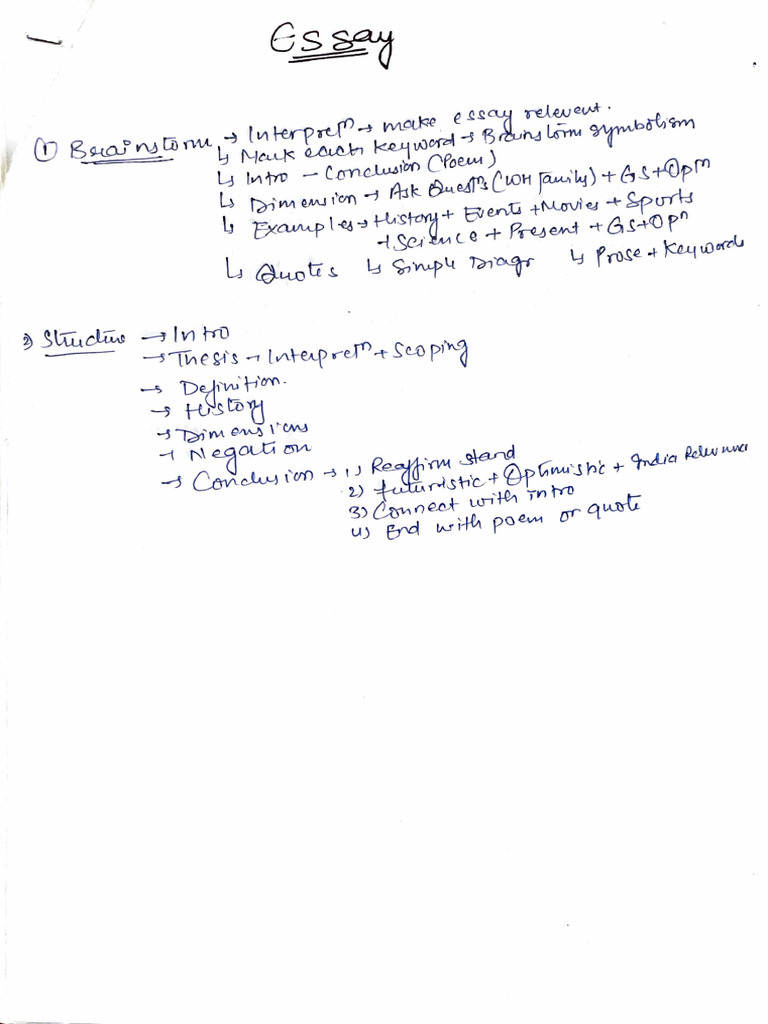 Essay
① Brainstorm → Interpretⁿ → make essay relevent.
↳ Mark each keyword → Brainstorm symbolism
↳ Intro – Conclusion (Poem)
↳ Dimension → Ask Questⁿs (WH family) + GS + Opⁿ
↳ Examples → History + Events + Movies + Sports
+ Science + Present + GS + Opⁿ
↳ Quotes ↳ Simple Diagr ↳ Prose + Keywords
2) Structure → Intro
→ Thesis → Interpretⁿ + Scoping
→ Definition.
→ History
→ Dimensions
→ Negation
→ Conclusion → 1) Reaffirm stand
2) futuristic + Optimistic + India Relevance
3) Connect with intro
4) End with poem or quote